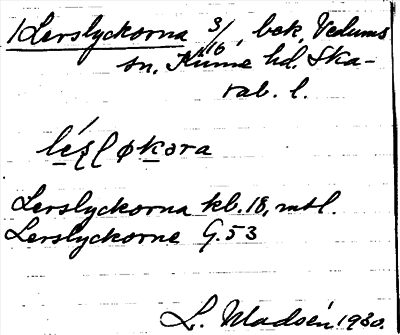 1 Lerslyckorna 3/16, bek. Vedums
sn, Kinne hd. Ska-
rab. l.
Lerslyckorna kb. 18, mtl.
Lerslyckorne G. 53
L. Madsén. 1930.